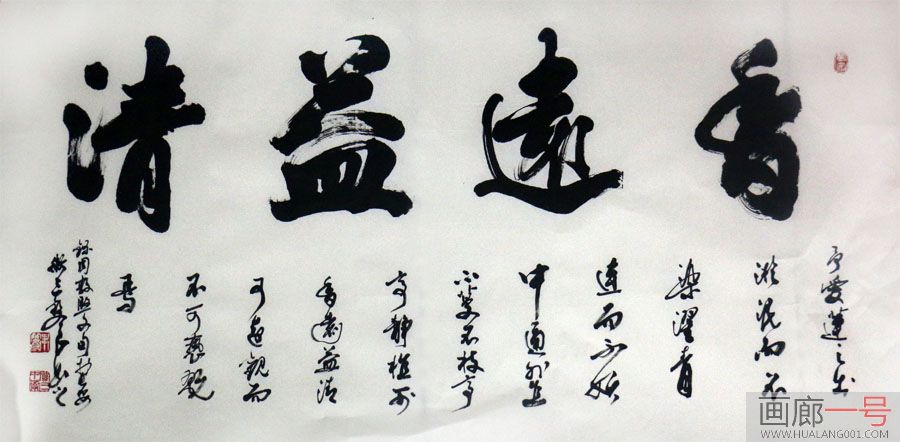 香遠益清
予愛蓮之出
淤泥而不
染濯青
連而不妖
中通外直
不蔓不枝亭
亭静植
香遠益清
可遠觀而
不可褻翫
焉
画廊一号
WWW.HUALANG001.COM